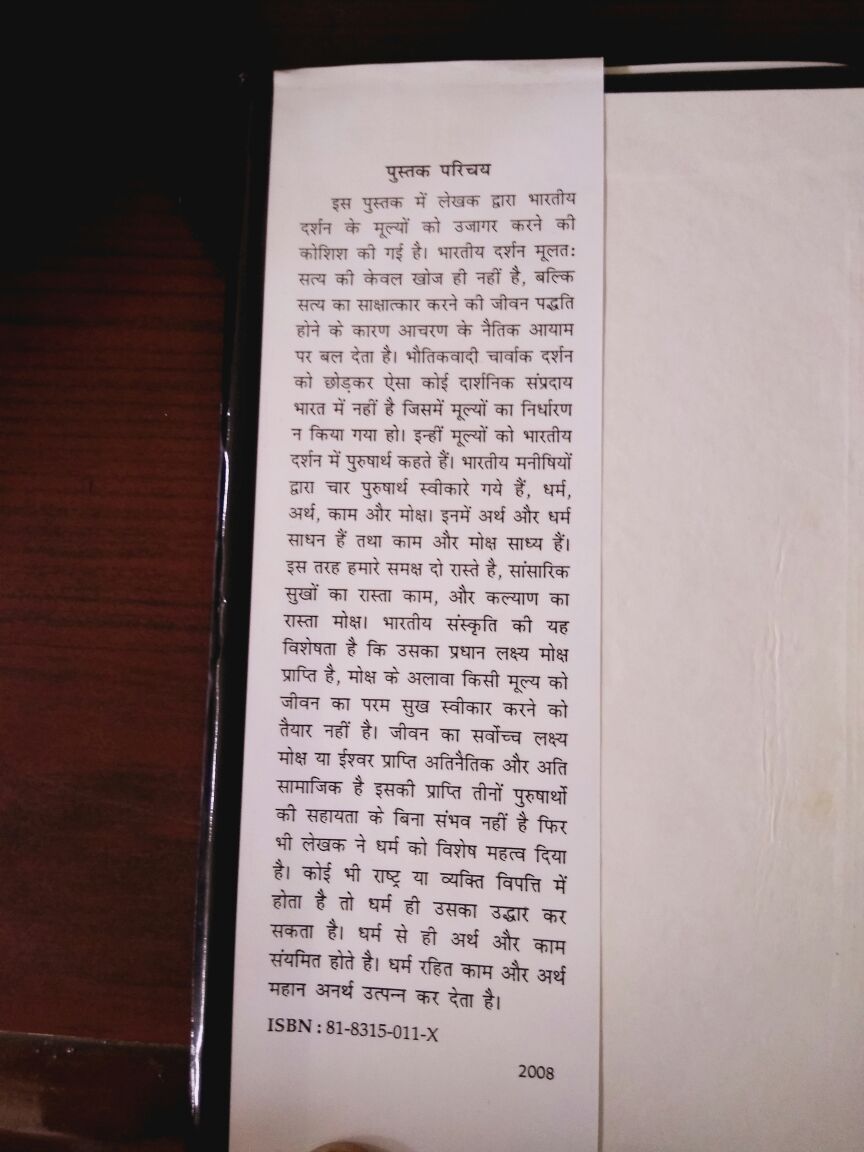 पुस्तक परिचय
इस पुस्तक में लेखक द्वारा भारतीय
दर्शन के मूल्यों को उजागर करने की
कोशिश की गई है। भारतीय दर्शन मूलत:
सत्य की केवल खोज ही नहीं है, बल्कि
सत्य का साक्षात्कार करने की जीवन पद्धति
होने के कारण आचरण के नैतिक आयाम
पर बल देता है। भौतिकवादी चार्वाक दर्शन
को छोड़कर ऐसा कोई दार्शनिक संप्रदाय
भारत में नहीं है जिसमें मूल्यों का निर्धारण
न किया गया हो। इन्हीं मूल्यों को भारतीय
दर्शन में पुरुषार्थ कहते हैं। भारतीय मनीषियों
द्वारा चार पुरुषार्थ स्वीकारे गये हैं, धर्म,
अर्थ, काम और मोक्ष। इनमें अर्थ और धर्म
साधन हैं तथा काम और मोक्ष साध्य हैं।
इस तरह हमारे समक्ष दो रास्ते है, सांसारिक
सुखों का रास्ता काम, और कल्याण का
रास्ता मोक्ष। भारतीय संस्कृति की यह
विशेषता है कि उसका प्रधान लक्ष्य मोक्ष
प्राप्ति है, मोक्ष के अलावा किसी मूल्य को
जीवन का परम सुख स्वीकार करने को
तैयार नहीं है। जीवन का सर्वोच्च लक्ष्य
मोक्ष या ईश्वर प्राप्ति अतिनैतिक और अति
सामाजिक है इसकी प्राप्ति तीनों पुरुषार्थो
की सहायता के बिना संभव नहीं है फिर
भी लेखक ने धर्म को विशेष महत्व दिया
है। कोई भी राष्ट्र या व्यक्ति विपत्ति में
होता है तो धर्म ही उसका उद्धार कर
सकता है। धर्म से ही अर्थ और काम
संयमित होते है। धर्म रहित काम और अर्थ
महान अनर्थ उत्पन्न कर देता है।
ISBN : 81-8315-011-X
2008